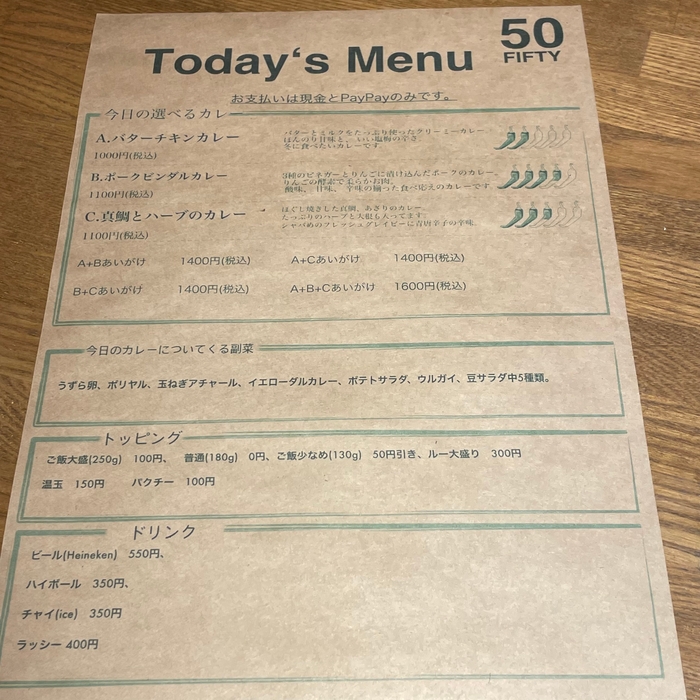 Today‘s Menu
50
FIFTY
お支払いは現金とPayPayのみです。
今日の選べるカレー
A.バターチキンカレー
1000円(税込)
バターとミルクをたっぷり使ったクリーミーカレー。
ほんのり甘味と、いい塩梅の辛さ。
冬に食べたいカレーです。
B.ポークビンダルカレー
1100円(税込)
3種のビネガーとりんごに漬け込んだポークのカレー。
りんごの酵素で柔らかお肉。
酸味、甘味、辛味の揃った食べ応えのカレーです。
C.真鯛とハーブのカレー
1100円(税込)
ほぐし焼きした真鯛、あさりのカレー。
たっぷりのハーブと大根も入ってます。
シャバめのフレッシュグレイビーに青唐辛子の辛味。
A+Bあいがけ 1400円(税込) A+Cあいがけ 1400円(税込)
B+Cあいがけ 1400円(税込) A+B+Cあいがけ 1600円(税込)
今日のカレーについてくる副菜
うずら卵、ポリヤル、玉ねぎアチャール、イエローダルカレー、ポテトサラダ、ウルガイ、豆サラダ中5種類。
トッピング
ご飯大盛(250g) 100円、 普通(180g) 0円、ご飯少なめ(130g) 50円引き、ルー大盛り 300円
温玉 150円 パクチー 100円
ドリンク
ビール(Heineken) 550円、
ハイボール 350円、
チャイ(ice) 350円
ラッシー 400円